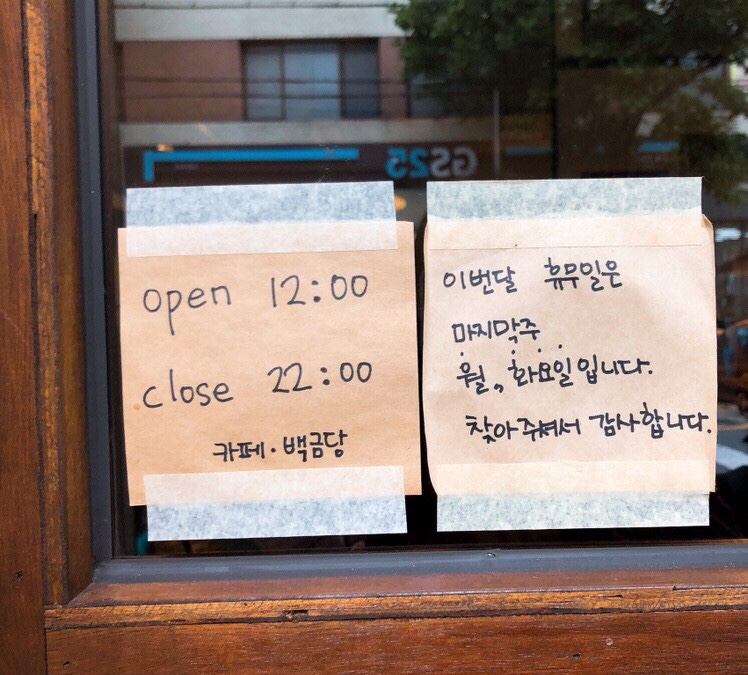 GS25
open 12:00
close 22:00
카페·백금당
이번달 휴무일은
마지막주
월, 화요일입니다.
찾아주셔서 감사합니다.